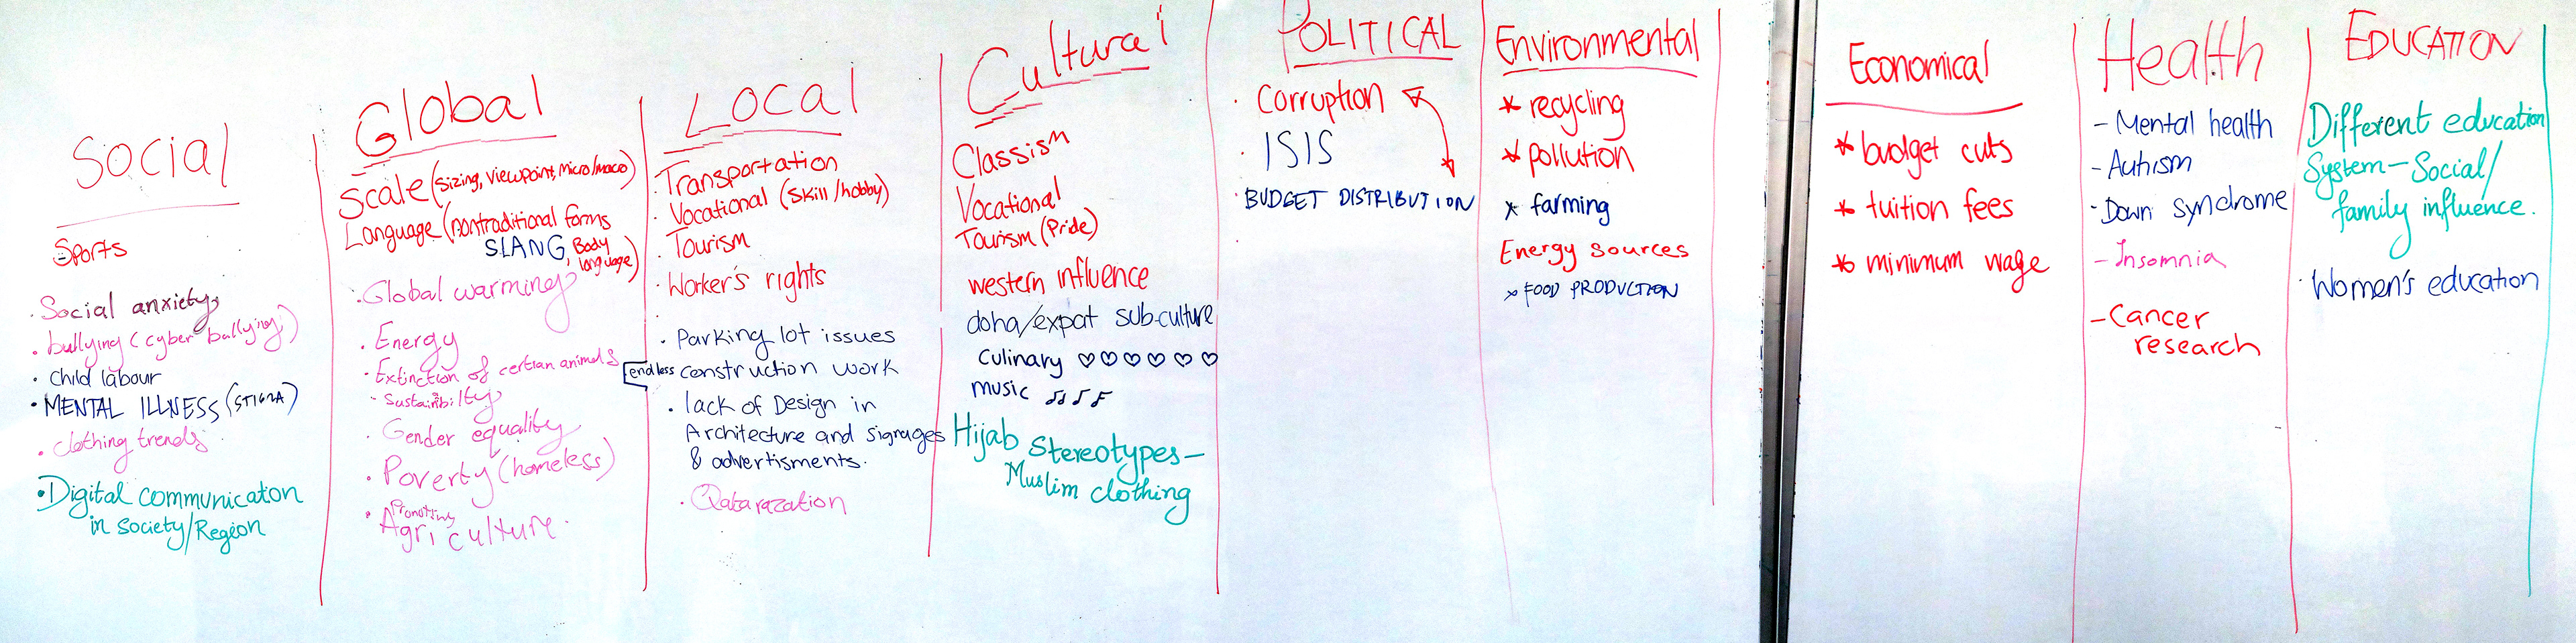 Social
Sports
Social anxiety
bullying (cyber bullying)
Child labour
MENTAL ILLNESS (STIGMA)
clothing trends
Digital communication
in society/Region
Global
Scale (sizing, viewpoint, micro/maco)
Language (nontraditional forms
SLANG, Body
language)
Global warming
Energy
Extinction of certian animals
Sustainbilty
Gender equality
Poverty (homeless)
Promoting
Agriculture
Local
Transportation
Vocational (skill/hobby)
Tourism
Worker's rights
Parking lot issues
endless construction work
lack of Design in
Architecture and signages
& advertisments.
Qatarazation
Cultural
Classism
Vocational
Tourism (Pride)
western influence
doha/expat sub-culture
Culinary ♡♡♡♡♡♡
music
Hijab Stereotypes—
Muslim clothing
POLITICAL
Corruption
ISIS
BUDGET DISTRIBUTION
Environmental
* recycling
* pollution
* farming
Energy sources
* FOOD PRODUCTION
Economical
* budget cuts
* tuition fees
* minimum wage
Health
- Mental health
- Autism
- Down syndrome
- Insomnia
- Cancer
research
EDUCATION
Different education
System—Social/
family influence.
Women's education